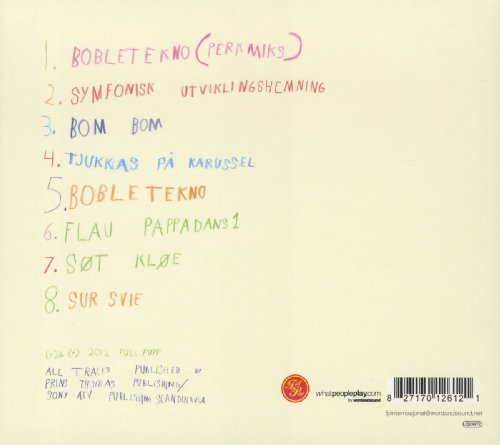 1. BOBLETEKNO (PERKMIKS)
2. SYMFONISK UTVIKLINGSHEMNING
3. BOM BOM
4. TJUKKAS PÅ KARUSSEL
5. BOBLETEKNO
6. FLAU PAPPADANS 1
7. SØT KLØE
8. SUR SVIE
(C)& (P) 2012 FULL PUPP
ALL TRACKS PUBLISHED BY
PRINS THOMAS PUBLISHING/
SONY ATV PUBLISHING SCANDINAVIA
Full Pupp
whatpeopleplay.com
by wordandsound
8 27170 12612 1
fpinternasjonal@wordandsound.net